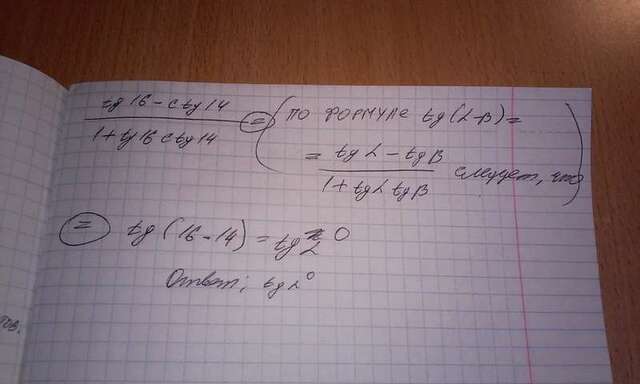 tg 16 - ctg 14
1 + tg 16 ctg 14
= ( по формуле tg(α-β) =
= tg α - tg β
1 + tg α tg β
следует, что )
= tg (16 - 14) = tg 2 0
Ответ: tg 2°